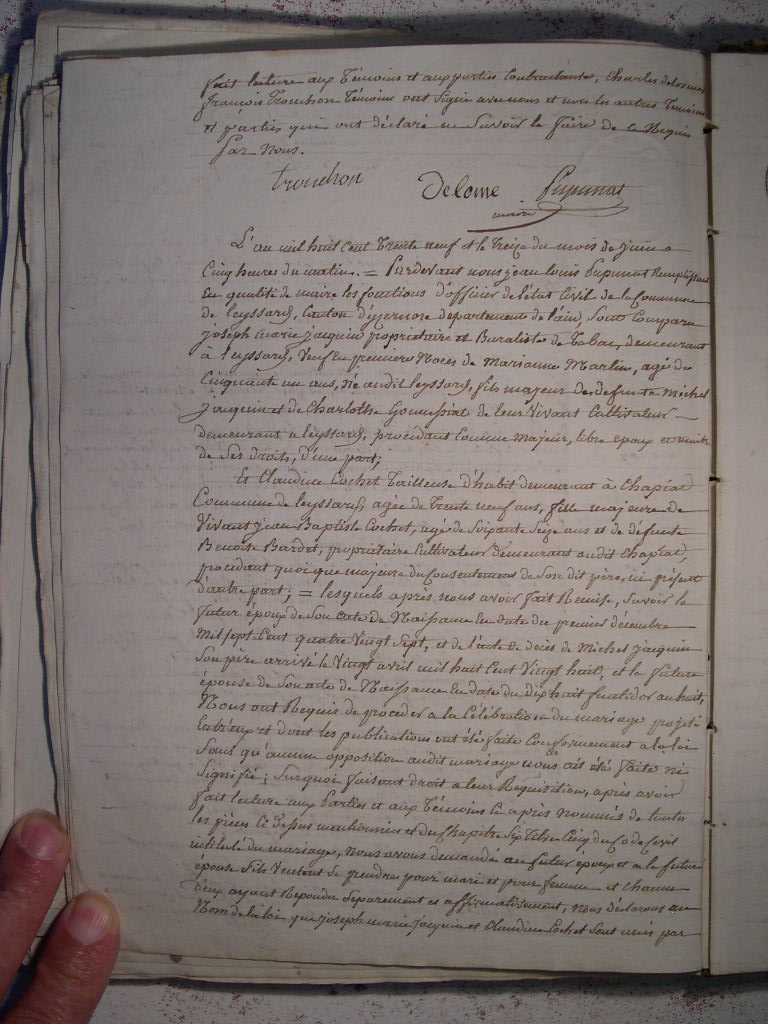 fait lecture aux témoins et aux parties Contractantes, Charles delorme
françois trouchon témoins ont signé avec nous et non les autres témoins
et parties qui ont déclaré ne Savoir le faire de ce Requis
Par Nous.
trouchon Delome Pupunat
maire
L'an mil huit Cent Trente neuf et le treize du mois de juin a
Cinq heures du matin. = Pardevant nous jean louis Pupunat Remplissant
En qualité de maire les fonctions d'officier de l'état Civil de la Commune
de leyssard, Canton d'izernore departement de l'ain, Sont Comparu
joseph marie jacquin propriétaire et Buraliste de Tabac, demeurant
à leyssard, Veuf En premiere Noces de Marianne Marlin, agé de
Cinquante un ans, né audit leyssard, fils majeur de defunts Michel
jacquin et de Charlotte de leur Vivant Cultivateur
demeurant a leyssard, procédant Comme Majeur, libre epoux et
de Ses droits, d'une part;
Et Claudine Cochet Tailleuse d'habit demeurant à Chapiat
Commune de leyssard, agée de Trente neuf ans, fille majeure de
Vivant jean Baptiste Cochet, agé de Soixante Seize ans et de défunte
Benoite Bardet, propriétaire Cultivateur demeurant audit Chapiat,
procédant quoique majeure du Consentement de Son dit père, ici présent
d'autre part; = lesquels après nous avoir fait Remise, Savoir le
futur époux de Son acte de Naissance En date du premier décembre
Mil sept Cent quatre Vingt Sept, et de l'acte de décès de Michel jacquin
Son père arrivé le Vingt avril mil huit Cent Vingt huit, et la future
épouse de Son acte de Naissance En date du dix huit fructidor an huit,
Nous ont Requis de proceder a la Célébration du mariage projeté
Entr'eux et dont les publications ont été faite Conformément a la loi
Sans qu'aucune opposition audit mariage nous ait été faite ni
Signifié; Surquoi faisant droit a leur Réquisition, après avoir
fait lecture aux Parties et aux Témoins Ci après nommés de toutes
les pièces Ci dessus mentionnées et du Chapitre Six Titre Cinq du Code Civil
intitulé du mariage, Nous avons demandé au futur époux et a la future
épouse S'ils Veulent Se prendre pour mari et pour femme et chacun
d'eux ayant Repondu Séparement et affirmativement, Nous déclarons au
Nom de la loi que joseph marie jacquin et Claudine Cochet Sont unis par